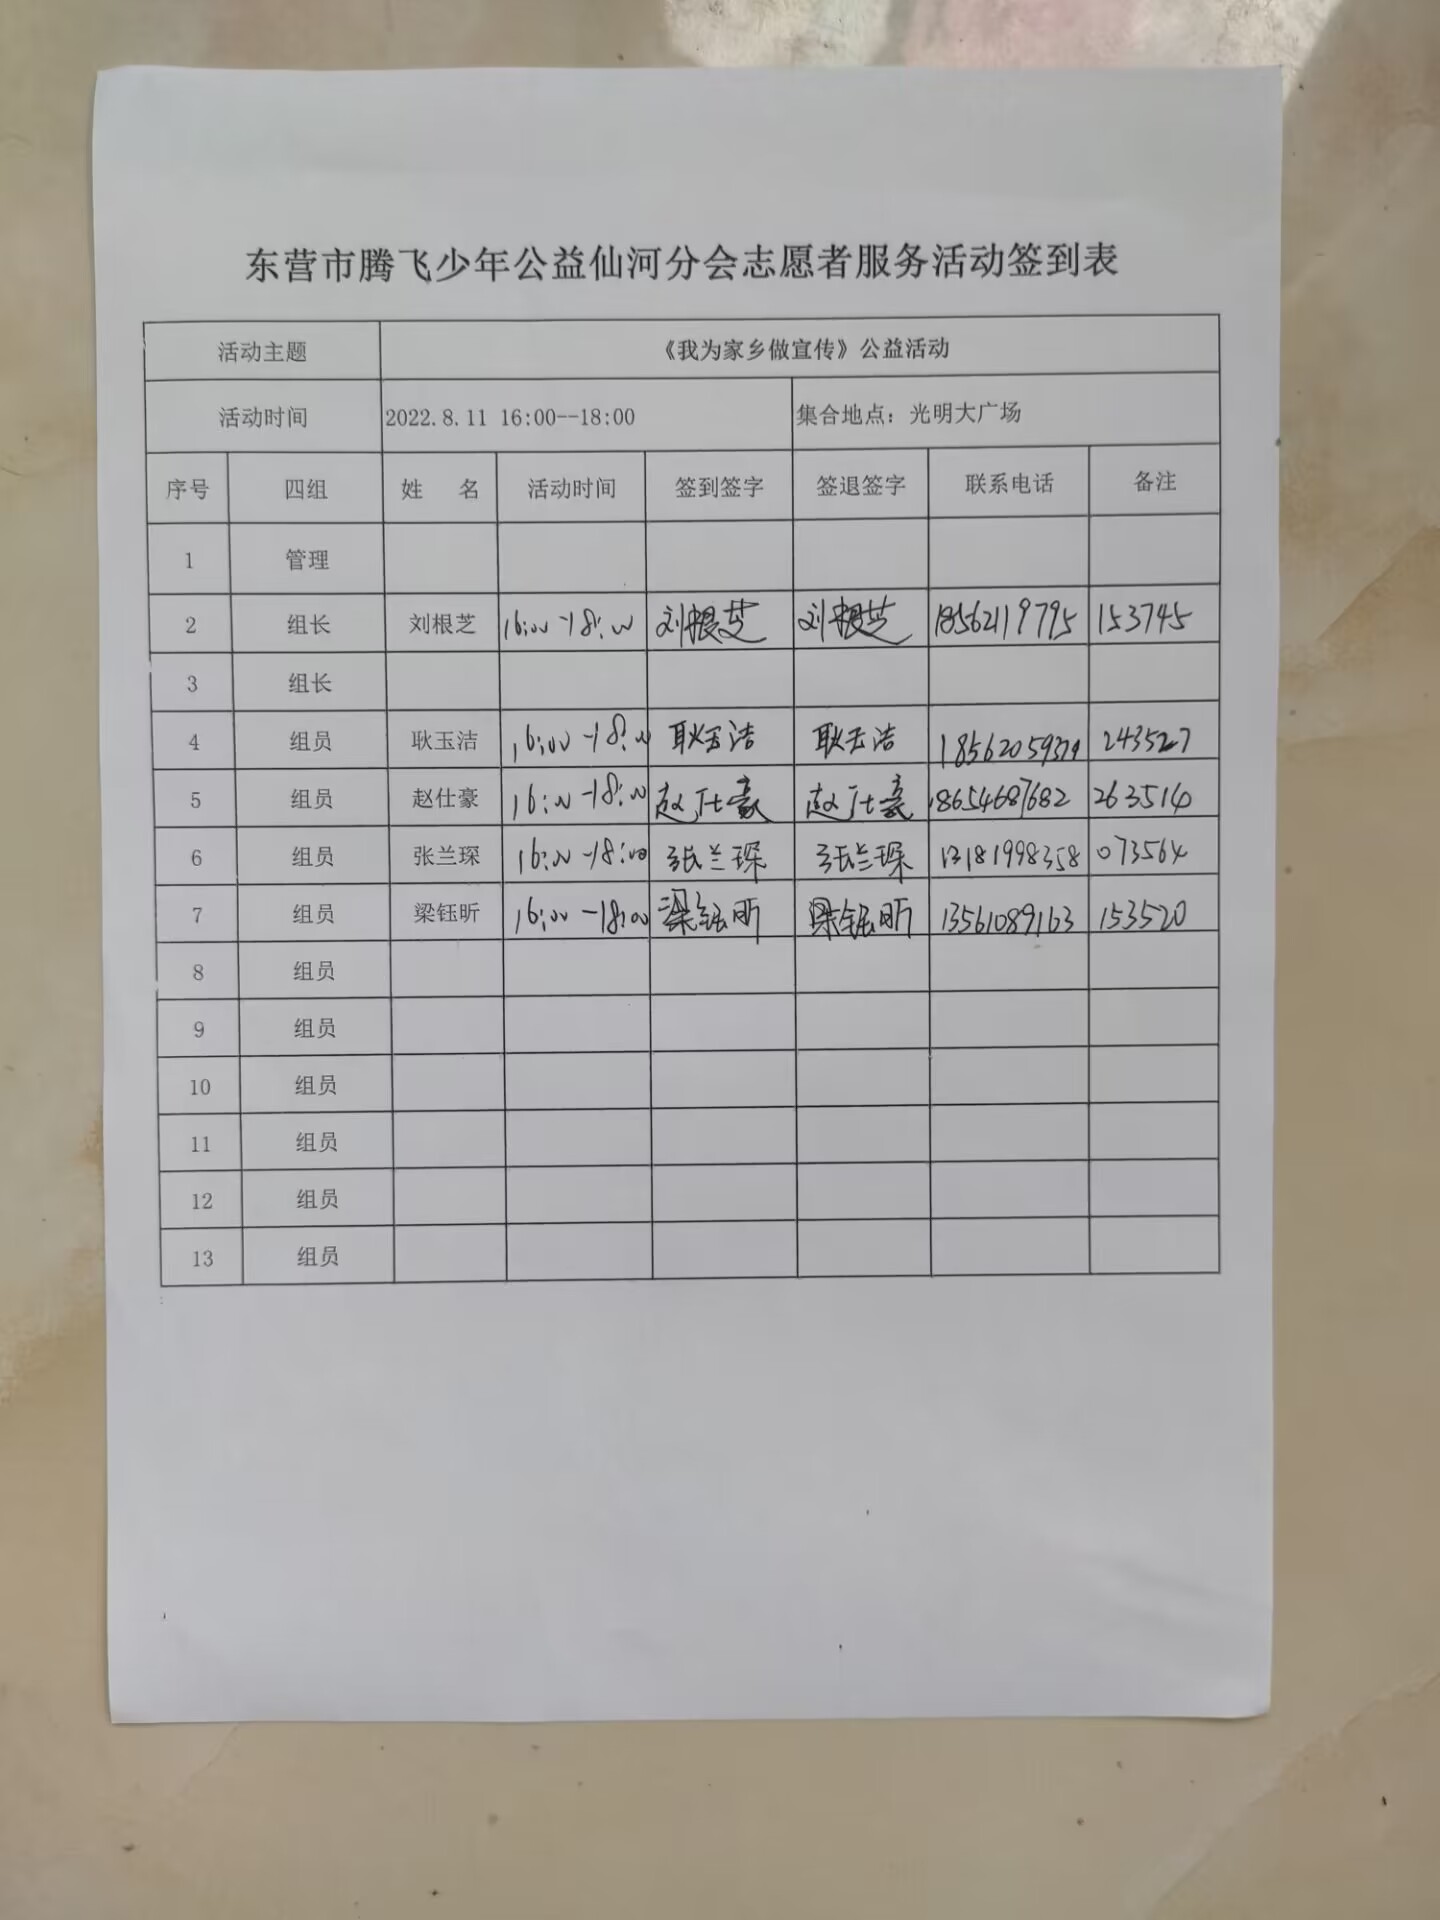 东营市腾飞少年公益仙河分会志愿者服务活动签到表
活动主题 《我为家乡做宣传》公益活动
活动时间 2022.8.11 16:00--18:00 集合地点：光明大广场
序号 四组 姓 名 活动时间 签到签字 签退签字 联系电话 备注
1 管理
2 组长 刘根芝 16:00-18:00 刘根芝 刘根芝 18562119795 153745
3 组长
4 组员 耿玉洁 16:00-18:00 耿玉洁 耿玉洁 243527
5 组员 赵仕豪 16:00-18:00 赵仕豪 赵仕豪 18654687682 263514
6 组员 张兰琛 16:00-18:00 张兰琛 张兰琛 13181998358 073564
7 组员 梁钰昕 16:00-18:00 梁钰昕 梁钰昕 13561089163 153520
8 组员
9 组员
10 组员
11 组员
12 组员
13 组员